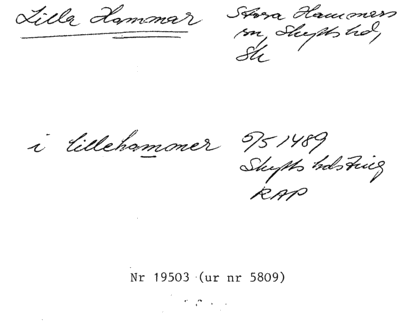 Lilla Hammar Stora Hammars
sn, Skytts hd,
Sk
i lillehammer 5/5 1489
Skytts hdsting
RAP
Nr 19503 (ur nr 5809)